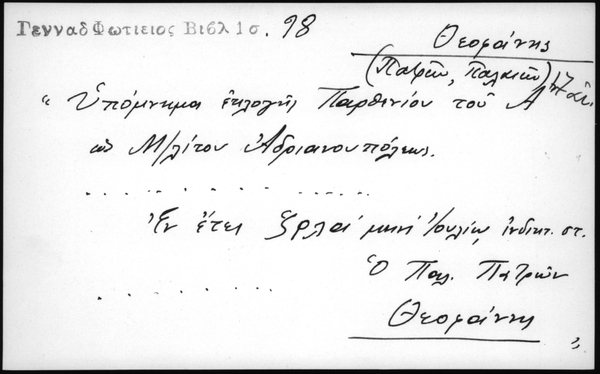 Γενναδ Φωτιειος Βιβλ 1σ. 98
Θεοφάνης
(Πατρῶν, Παλαιῶν) 17 αἰ.
“ Ὑπόμνημα ἐκλογῆς Παρθενίου τοῦ Α
ὡς Μ/λίτου Ἀδριανουπόλεως.
. . . . . . . . . . . .
Ἐν ἔτει ͵ζρλα' μηνὶ Ἰουλίῳ, ἰνδικτ. στ.
Ὁ Παλ. Πατρῶν
. . . . . .
Θεοφάνης „